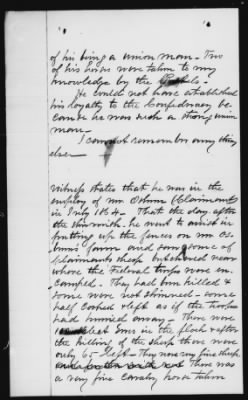 of his being a union man - Two
of his horses were taken to my
knowledge by the Rebels.
He could not have established
his loyalty to the Confederacy be-
cause he was such a strong union
man -
I cannot remember any thing
else -
witness states that he was in the
employ of Mr Osburn (Claimant)
in July 1864 - That the day after
the skirmish he went to assist in
putting up the fences on
farm and saw some of
Claimants sheep butchered near
where the Federal troops were en-
camped - They had been killed &
some were not skinned - some
half cooked & left as if the troops
had hurried away - There were
in the flock after
the killing of the sheep there were
only 65 left - They were very fine sheep
There was
a very fine Cavalry horse taken